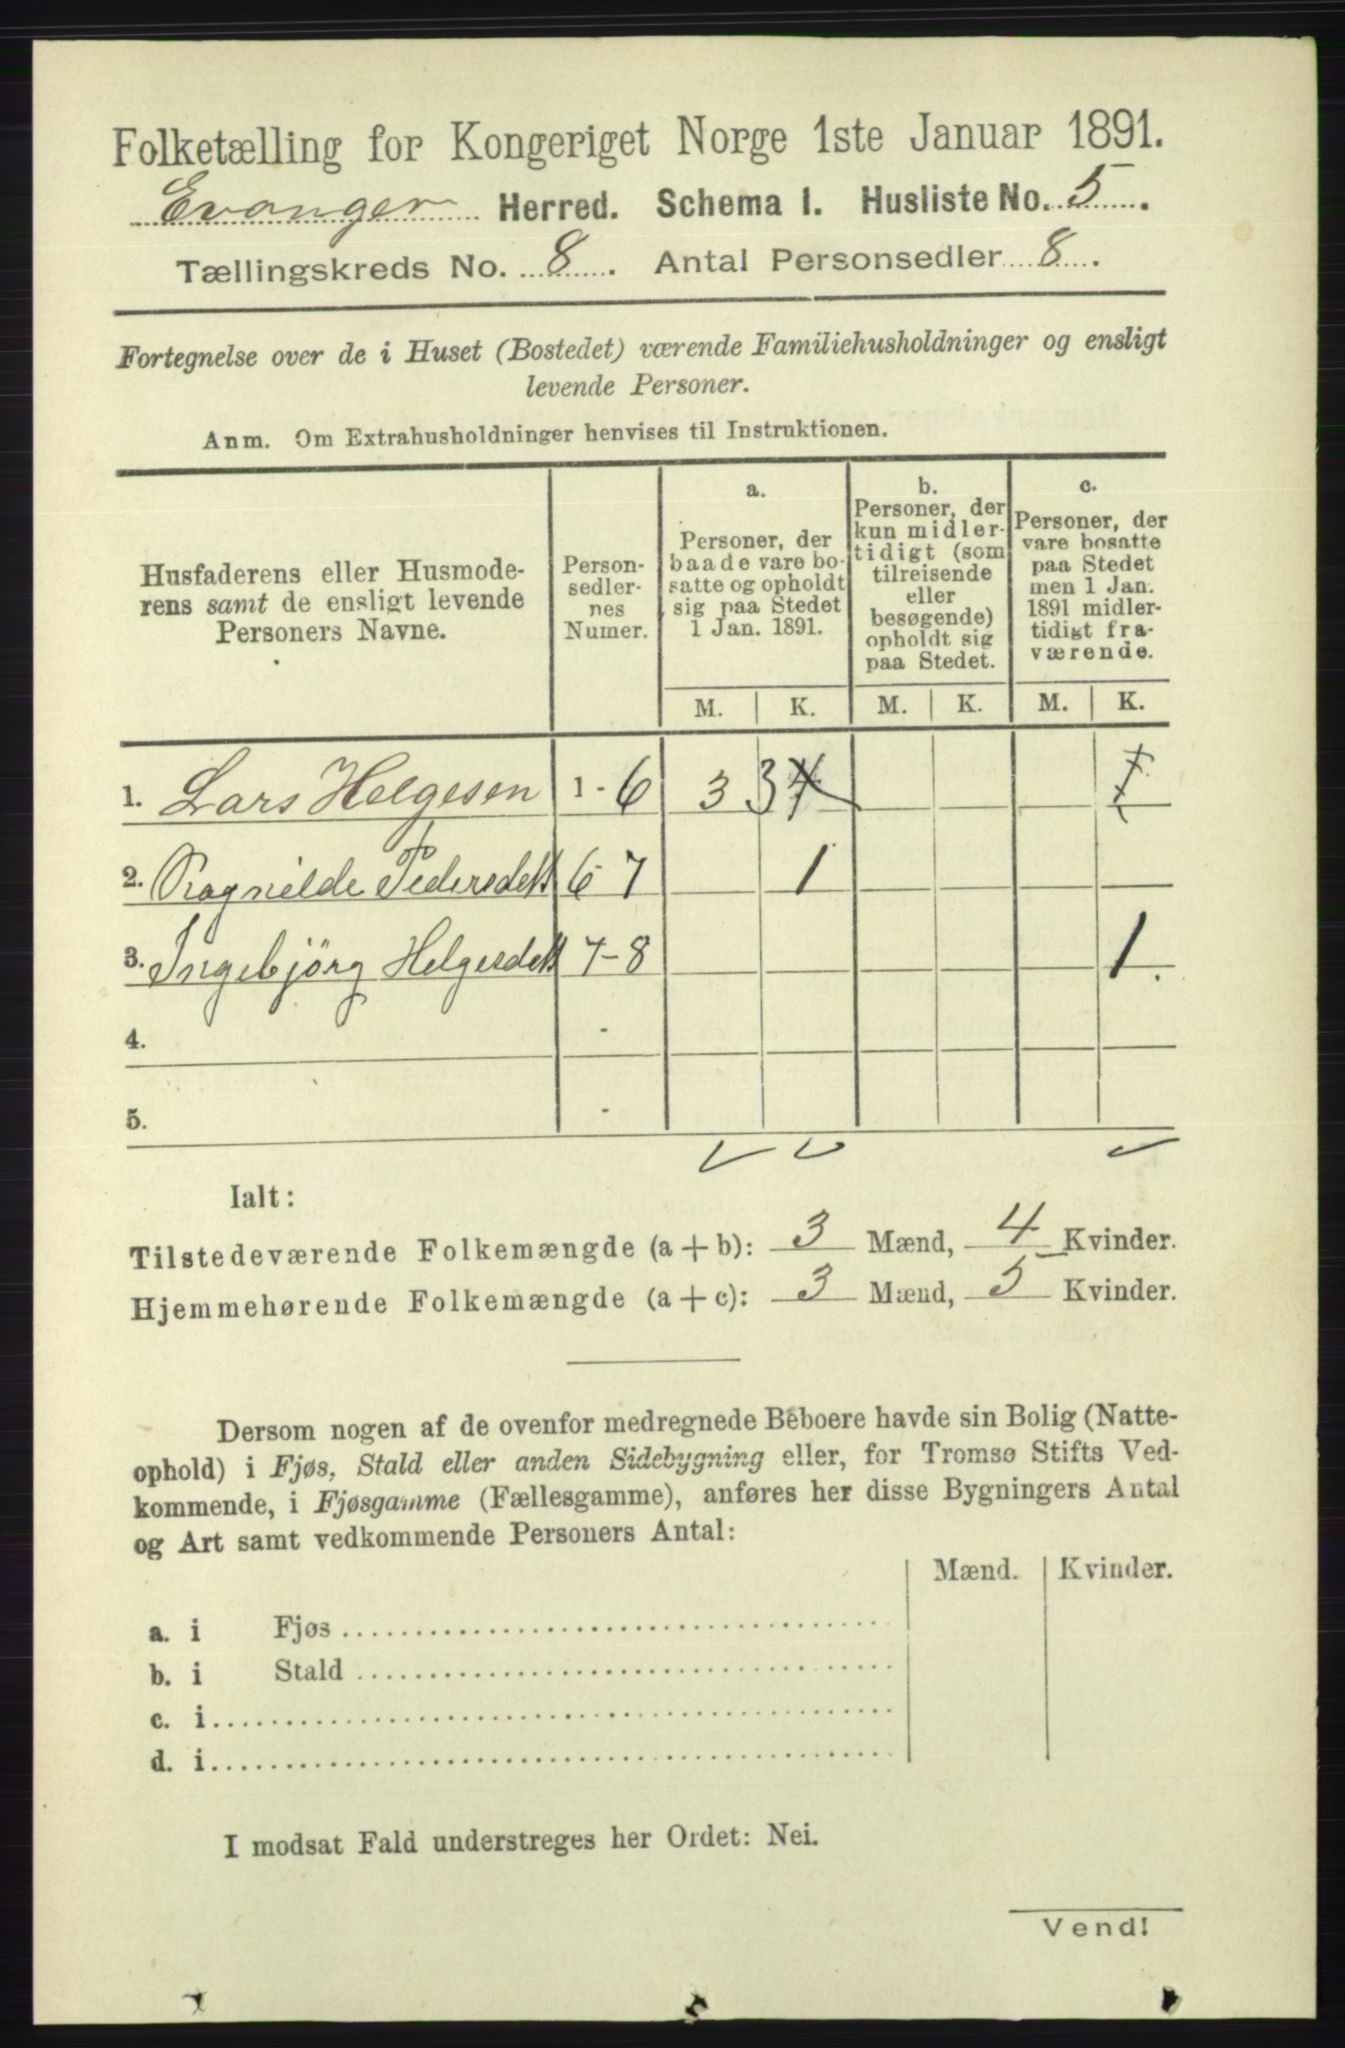 Folketælling for Kongeriget Norge 1ste Januar 1891.
Evanger Herred. Schema 1. Husliste No. 5.
Tællingskreds No. 8. Antal Personsedler 8.
Fortegnelse over de i Huset (Bostedet) værende Familiehusholdninger og ensligt
levende Personer.
Anm. Om Extrahusholdninger henvises til Instruktionen.
Husfaderens eller Husmode-
rens samt de ensligt levende
Personers Navne.
Person-
sedler-
nes
Numer.
a.
Personer, der
baade vare bo-
satte og opholdt
sig paa Stedet
1 Jan. 1891.
b.
Personer, der
kun midler-
tidigt (som
tilreisende
eller
besøgende)
opholdt sig
paa Stedet.
c.
Personer, der
vare bosatte
paa Stedet
men 1 Jan.
1891 midler-
tidigt fra-
værende.
M. K. M. K. M. K.
1. Lars Helgesen 1-6 3 3 4 1
2. Ragnilde Pedersdett 6-7 1
3. Ingebjörg Helgesdett 7-8 1.
4. -
5. -
Ialt:
Tilstedeværende Folkemængde (a + b): 3 Mænd, 4 Kvinder.
Hjemmehørende Folkemængde (a + c): 3 Mænd, 5 Kvinder.
Dersom nogen af de ovenfor medregnede Beboere havde sin Bolig (Natte-
ophold) i Fjøs, Stald eller anden Sidebygning eller, for Tromsø Stifts Ved-
kommende, i Fjøsgamme (Fællesgamme), anføres her disse Bygningers Antal
og Art samt vedkommende Personers Antal:
Mænd. Kvinder.
a. i Fjøs
b. i Stald
c. i
d. i
I modsat Fald understreges her Ordet: Nei.
Vend!